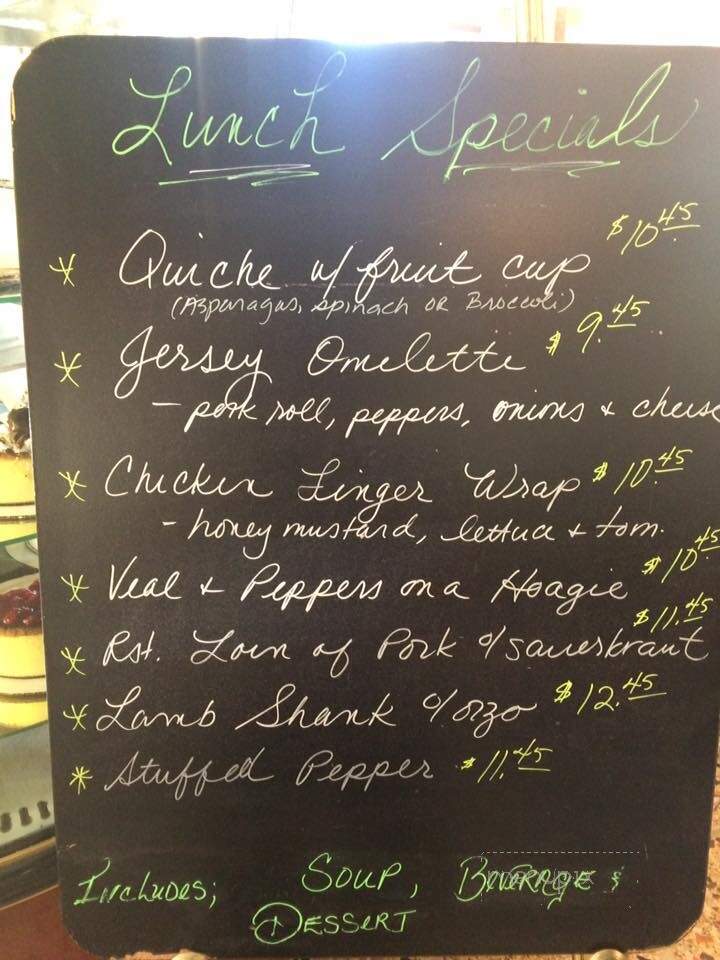 Lunch Specials
* Quiche w/ fruit cup $10.45
(Asparagus, spinach OR Broccoli)
* Jersey Omelette $9.45
- pork roll, peppers, onions & cheese
* Chicken Finger Wrap $10.45
- honey mustard, lettuce & tom.
* Veal & Peppers on a Hoagie $10.45
* Rst. Loin of Pork o/ sauerkraut $11.45
* Lamb Shank o/ orzo $12.45
* Stuffed Pepper $11.45
Includes; Soup, Beverage &
Dessert